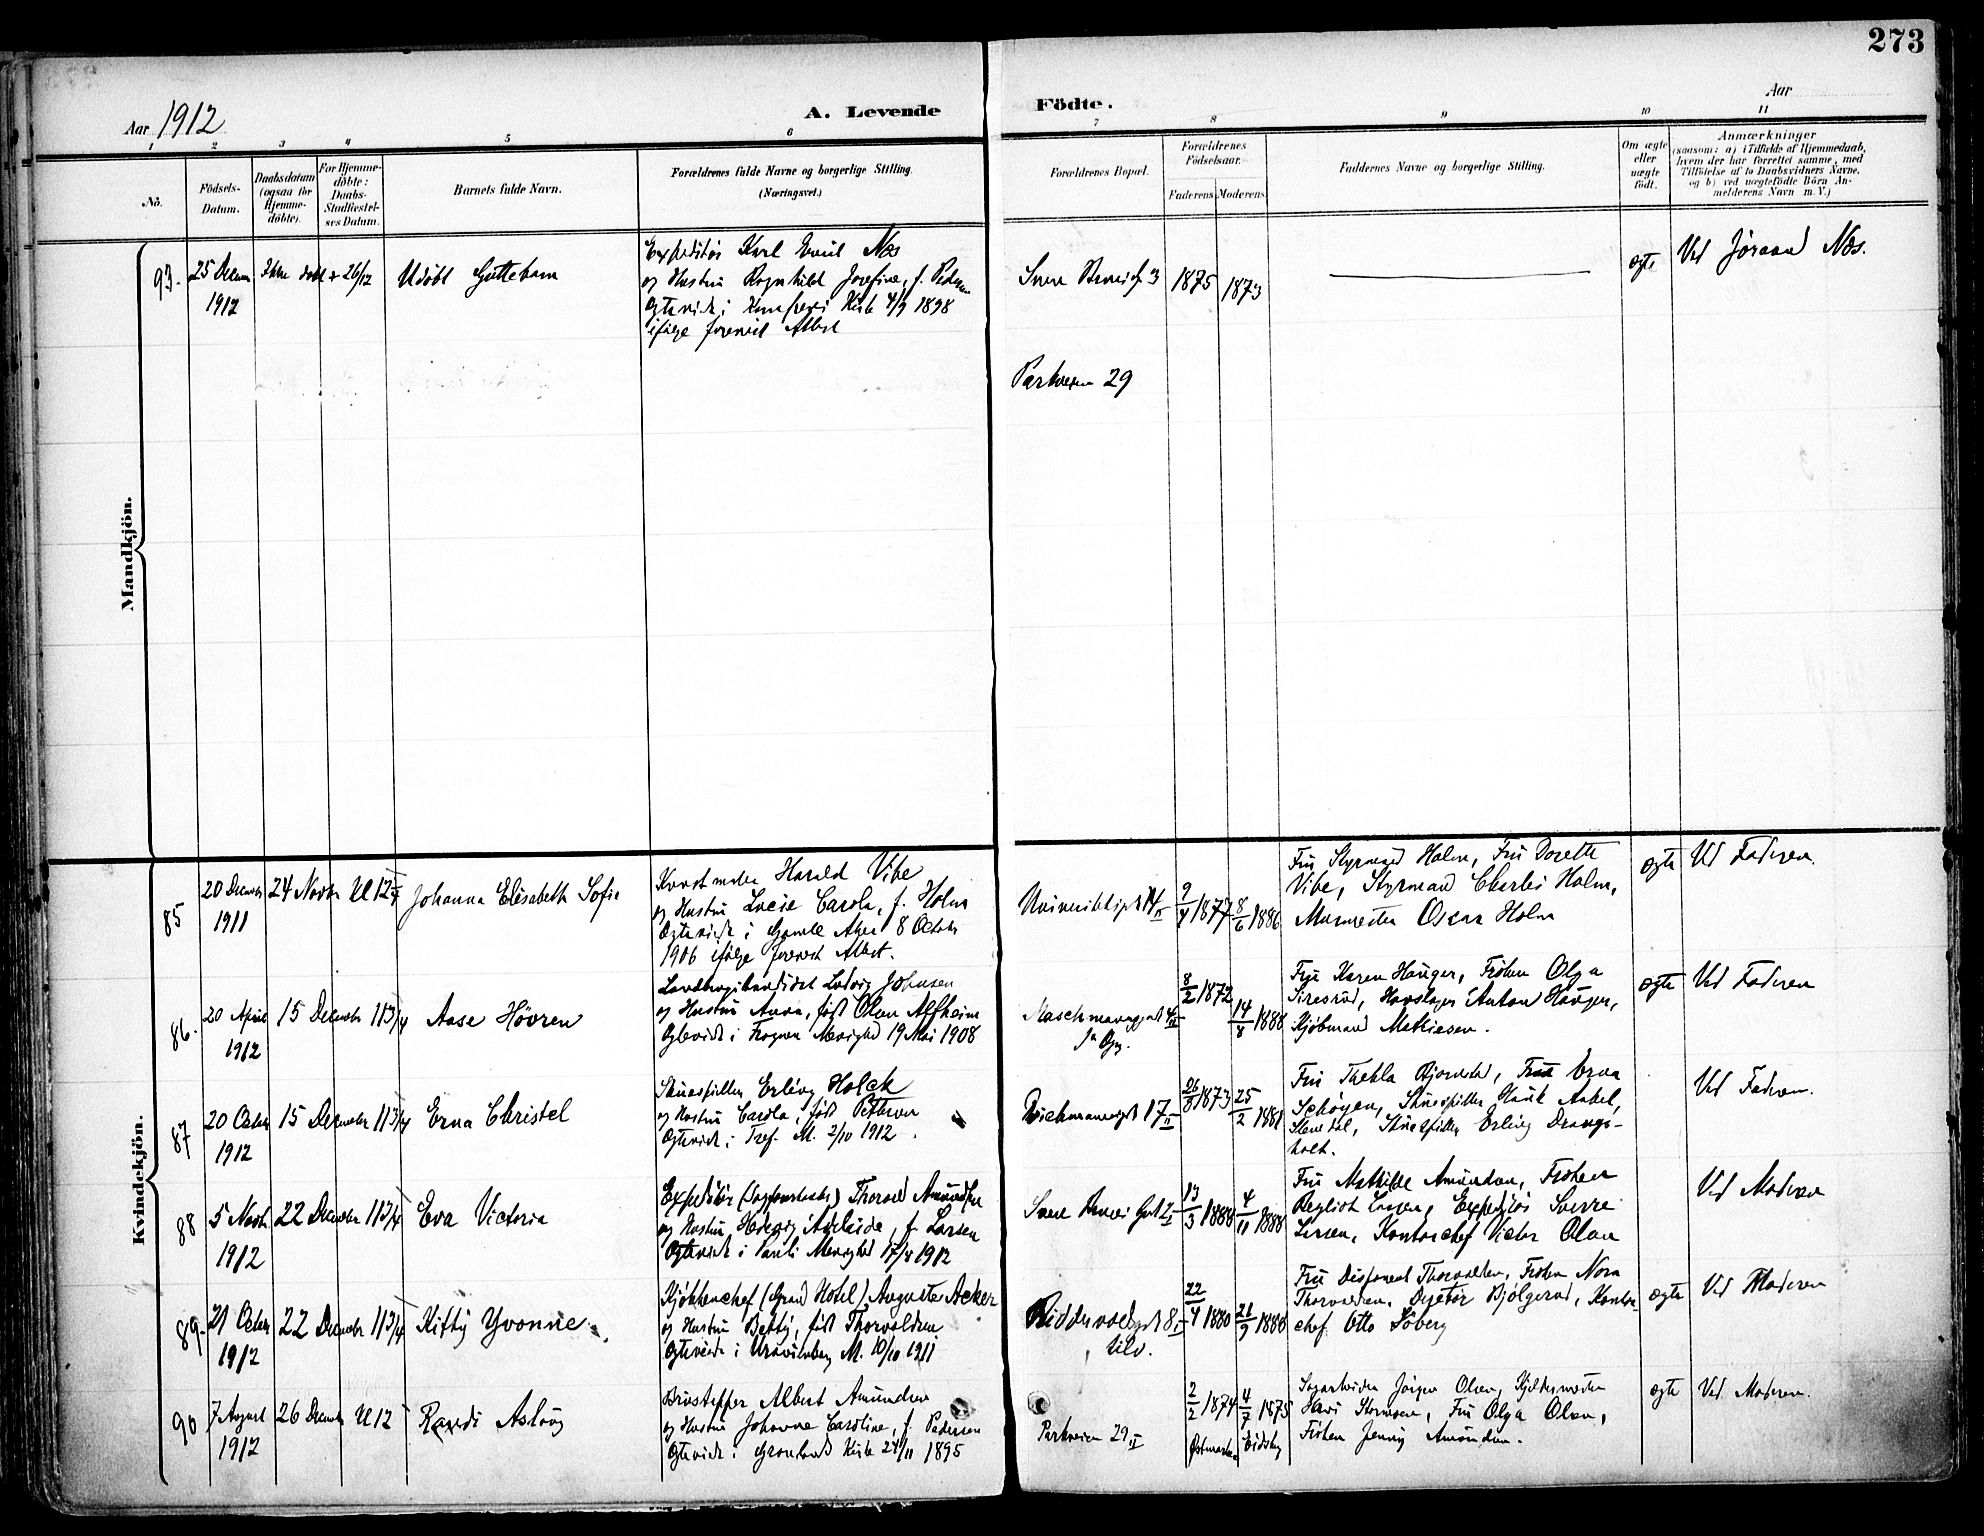 273
Aar 1912
A. Levende
Födte.
Aar
1 2 3 4 5 6 7 8 9 10 11
No.
Födsels-Datum.
Daabsdatum (ogsaa for Hjemme-döbte).
For Hjemme-döbte: Daabs-Stadfæstel-ses Datum.
Barnets fulde Navn.
Forældrenes fulde Navne og borgerlige Stilling. (Næringsvei.)
Forældrenes Bopæl.
Forældrenes Födselsaar.
Faderens Moderens
Faddernes Navne og borgerlige Stilling.
Om ægte eller uægte födt.
Anmærkninger
(saasom: a) i Tilfælde af Hjemmedaab, hvem der har forrettet samme, med Tilföielse af to Daabsvidners Navne, og b) ved uægtefödte Börn An-melderens Navn m. V.)
Mandkjön.
93.
25 Decem 1912
Ikke döbt + 26/12
Udöbt Guttebarn
Expeditör Karl Emil Næs
og Hustru Ragnhild Josefine, f. Pedersen
Ægteviet i Kampens Kirke 4/9 1898
ifølge forevist Attest
1875
1873
ægte
Ved Næs.
Parkveien 29
Kvindekjön.
85
20 Decembr 1911
24 Novbr
U 12
Johanna Elisabeth Sofie
Kunstmaler Harald Vibe
og Hustru Lucie Carola, f. Holm
Ægteviet i Gamle Aker 8 October
1906 ifølge forevist Attest.
1877
8/6 1886
Fru Styrmand Holm, Fru Dorette
Vibe, Styrmand Charles Holm,
Murmester Oscar Holm
ægte
Ved Faderen.
86.
20 April 1912
15 December
113/4
Aase Hövren
Ludvig Johnsen
og Hustru Anna, født Olsen Alfheim
Ægteviet i Frogner Menighed 19 Mai 1908
8/2 1872
14/8 1888
Fru Karen Hauger, Frøken Olga
Hovslager Anton Hauger,
Kjøbmand Mathiesen.
ægte
Ved Faderen
87
20 October 1912
15 December
113/4
Erna Christel
Skuespiller Erling Holck
og Hustru Carola, født
Ægteviet i Tref. M. 2/10 1912.
17 II
1873
25/2 1881
Fru Thekla Fru Erna
Schøyen, Skuespiller Hauk Aabel,
Skuespiller Erling Drangs-
holt.
Ved Faderen.
88
5 Novbr 1912
22 December
113/4
Eva Victoria
Expeditör Thorvald Amundsen
og Hustru Hedevig Adelaide, f. Larsen
Ægteviet i Pauli Menighed 17/8 1912
13/3 1888
4/11 1888
Fru Mathilde Amundsen, Frøken
Expeditör Sverre
Larsen, Kontorchef Victor Olsen
Ved Moderen
89.
21 October 1912
22 December
113/4
Kitty Yvonne
Kjøkkenchef (Grand Hotel) Auguste Acker
og Hustru Betty, født Thorvaldsen
Ægteviet i Uranienborg M. 10/10 1911
Riddervoldsgt 8
22/4 1880
21/9 1888
Fru Disponent Thorvaldsen, Frøken Nora
Thorvaldsen, Kontor
chef Otto Søberg
ægte
Ved Moderen
90
7 August 1912
26 Decembr
U 12
Randi Aslaug
Albert Amundsen
og Hustru Johanne Caroline, f. Pedersen
Ægteviet i Grønlands Kirke 24/11 1895
Parkveien 29 II
2/2 1874
4/7 1875
Jørgen Olsen, Kjeldermester
Fru Olga Olsen,
Frøken Jenny Amundsen.
ægte
Ved Moderen.